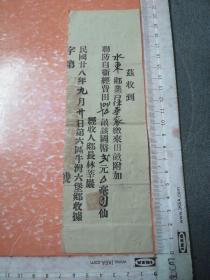 茲收到
水東鄉業戶
繳來田畝附加
聯防自衛經費田
畝該國幣
元
毫
仙
經收人鄉長林莘巖
民國廿八年九月廿日第六區牛灣六堡鄉收據
字第
號